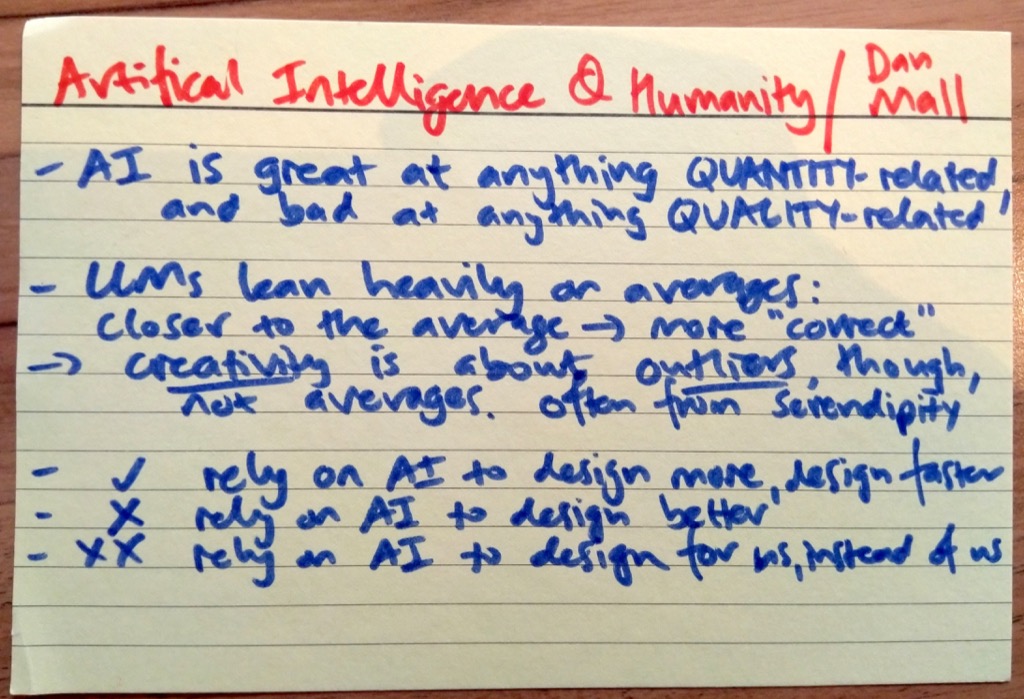 Artifical Intelligence & Humanity / Dan Mall
- AI is great at anything QUANTITY-related,
and bad at anything QUALITY-related
- LLMs lean heavily on averages:
closer to the average → more "correct"
→ creativity is about outliers, though,
not averages. often from serendipity
- ✓ rely on AI to design more, design faster
- X rely on AI to design better
- XX rely on AI to design for us, instead of us